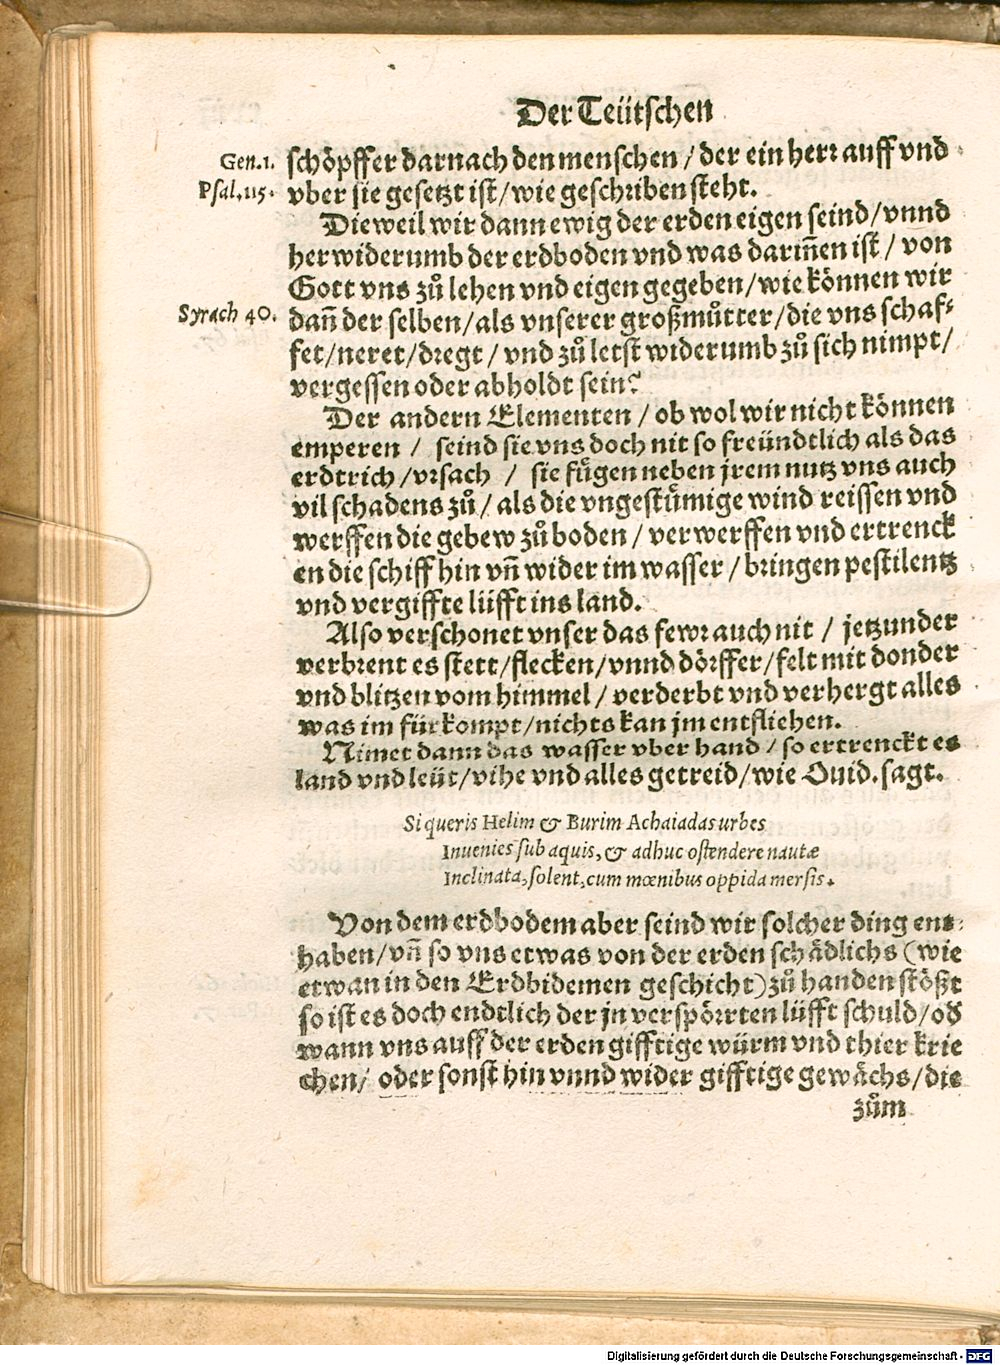 Der Teütschen
Gen. 1. schöpffer darnach den menschen / der ein herr auff vnd
Psal. 115. vber sie gesetzt ist / wie geschriben steht.
Dieweil wir dann ewig der erden eigen seind / vnnd
herwiderumb der erdboden vnd was dariñen ist / von
Gott vns zů lehen vnd eigen gegeben / wie können wir
Syrach 40. dañ der selben / als vnserer großmůtter / die vns schaf-
fet / neret / dregt / vnd zů letst widerumb zů sich nimpt /
vergessen oder abholdt sein?
Der andern Elementen / ob wol wir nicht können
emperen / seind sie vns doch nit so freündtlich als das
erdtrich / vrsach / sie fügen neben jrem nutz vns auch
vil schadens zů / als die vngestümige wind reissen vnd
werffen die gebew zů boden / verwerffen vnd ertrenck
en die schiff hin vñ wider im wasser / bringen pestilentz
vnd vergiffte lüfft ins land.
Also verschonet vnser das fewr auch nit / jetzunder
verbrent es stett / flecken / vnnd dörffer / felt mit donder
vnd blitzen vom himmel / verderbt vnd verhergt alles
was im fürkompt / nichts kan jm entfliehen.
Nimet dann das wasser vber hand / so ertrenckt es
land vnd leüt / vihe vnd alles getreid / wie Ouid. sagt.
Si queris Helim & Burim Achaiadas urbes
Inuenies sub aquis, & adhuc ostendere nautæ
Inclinata, solent, cum mœnibus oppida mersis.
Von dem erdbodem aber seind wir solcher ding ent-
haben / vñ so vns etwas von der erden schädlichs (wie
etwan in den Erdbidemen geschicht) zů handen stößt
so ist es doch endtlich der jn verspörrten lüfft schuld / od
wann vns auff der erden gifftige würm vnd thier krie
chen / oder sonst hin vnnd wider gifftige gewächs / die
zům
Digitalisierung gefördert durch die Deutsche Forschungsgemeinschaft - DFG